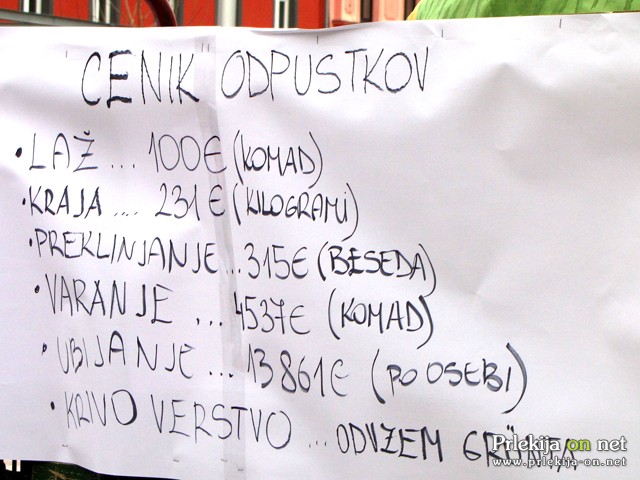 CENIK ODPUSTKOV
• LAŽ ... 100€ (KOMAD)
• KRAJA .... 231€ (KILOGRAMi)
• PREKLINJANJE ... 315€ (BESEDA)
• VARANJE ... 4537€ (KOMAD)
• UBIJANJE ... 13861€ (PO OSEBI)
• KRIVO VERSTVO ... ODVZEM GRÜNTA
Prlekija on net
www.prlekija-on.net